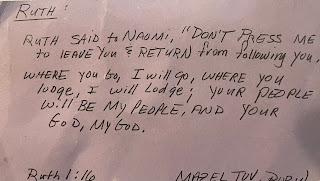 RUTH:
RUTH SAID to NAOMI, "DON'T PRESS ME
to LEAVE YOU & RETURN from following you,
WHERE YOU GO, I will go, WHERE YOU
LODGE, I will Lodge; YOUR PEOPLE
will BE MY PEOPLE, AND YOUR
GOD, MY GOD.
Ruth 1:16
MAZEL TOV,